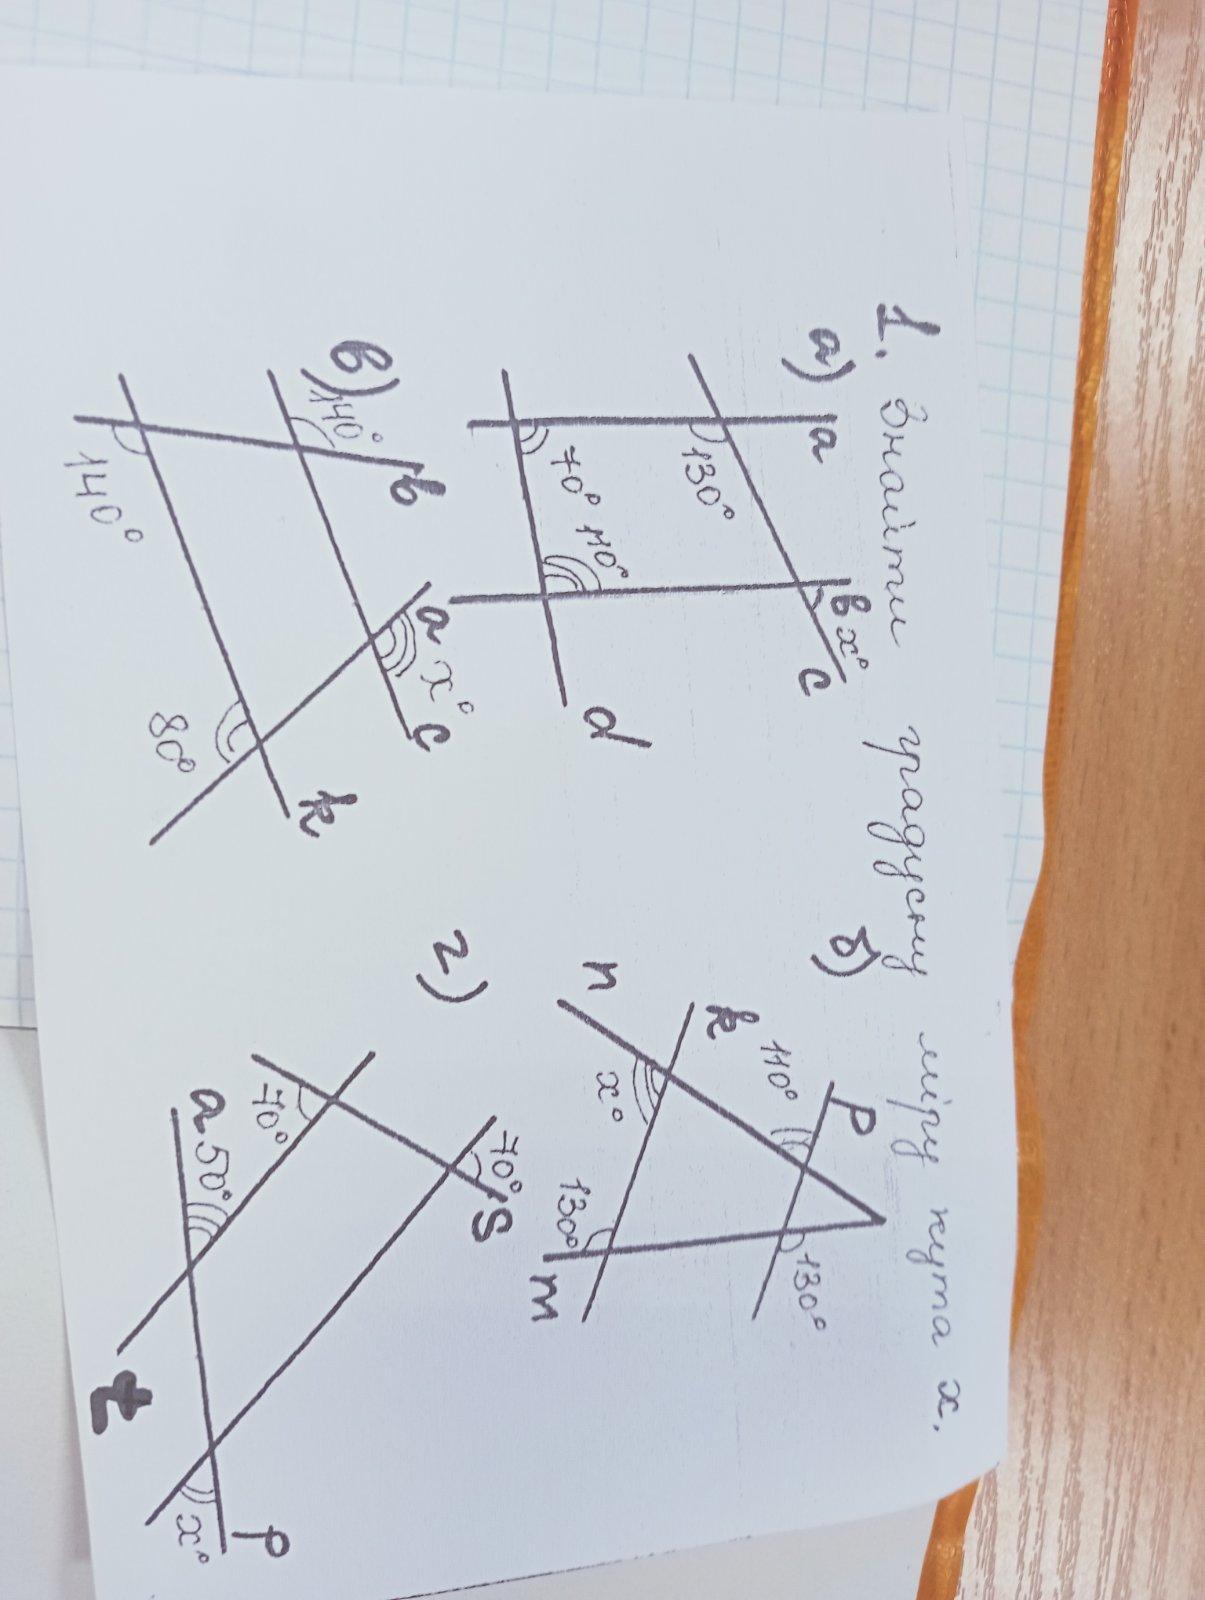 1. Знайти градусну міру кута x.
а)
a
130°
в x°
c
70° 110°
d
б)
P
k
110°
130°
n
x°
130°
m
в)
140°
b
a x°
c
140°
80°
k
г)
70°
S
70°
a 50°
t
x°
P